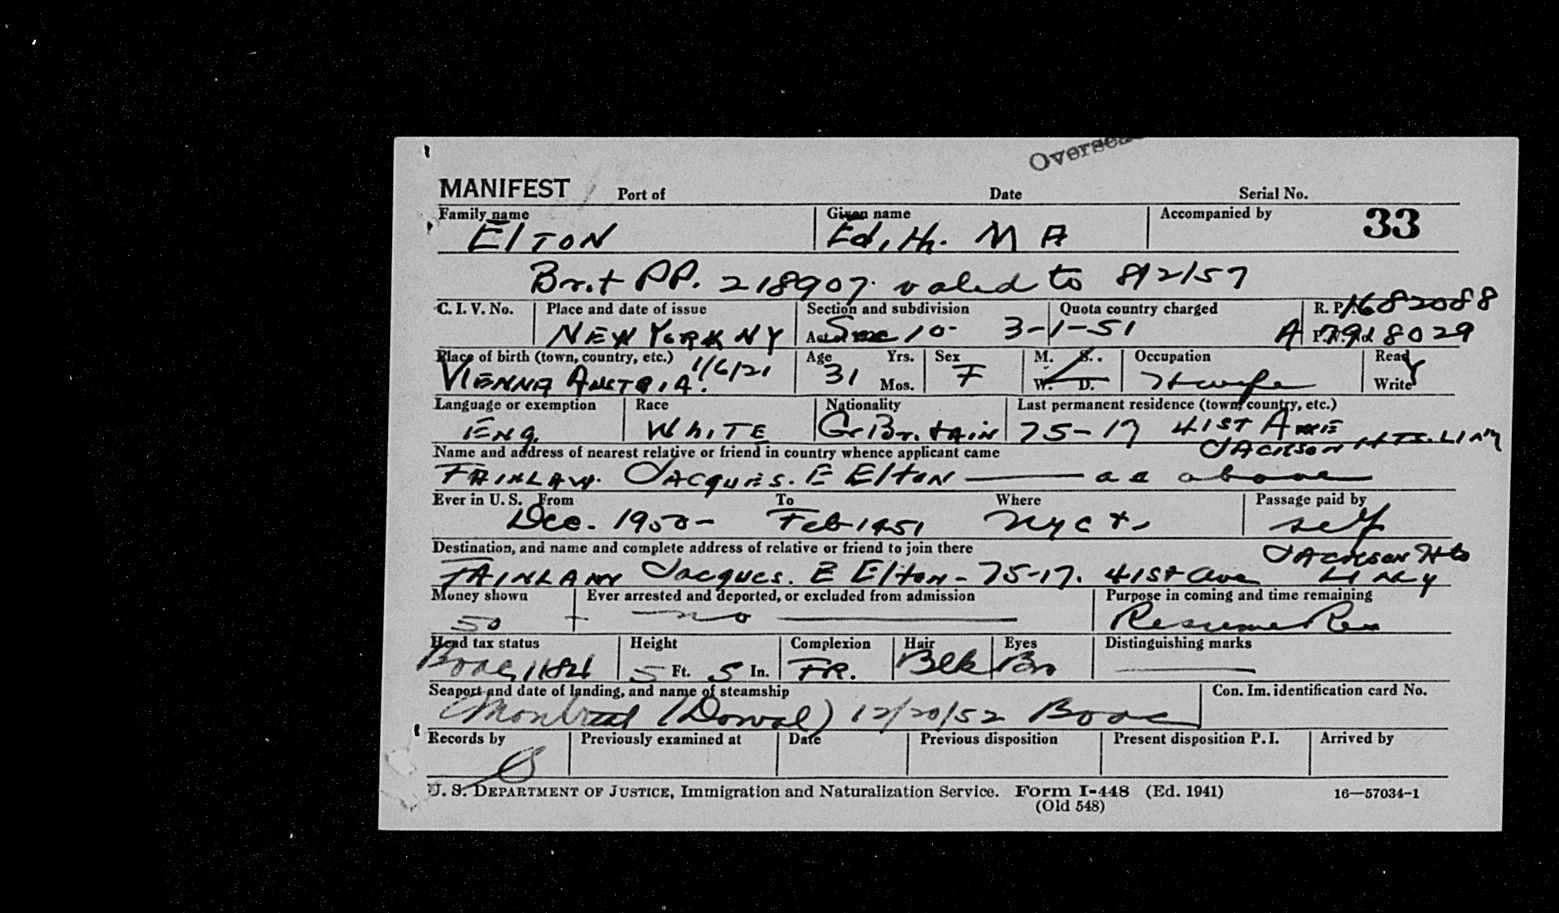 Overseas
MANIFEST Port of Date Serial No.
Family name Given name Accompanied by 33
ELTON Edith. M A
Brit PP. 218907. valid to 8/2/57
C. I. V. No. Place and date of issue Section and subdivision Quota country charged R. P. 1682088
NEW YORK NY Sec 10- 3-1-51 A 7918029
Place of birth (town, country, etc.) Age Yrs. Sex M. S. Occupation Read Y
VIENNA AUSTRIA. 1/6/21 31 Mos. F W. D. H wife Write
Language or exemption Race Nationality Last permanent residence (town, country, etc.)
ENG. WhITE Gr Britain 75-17 41ST AVE
JACKSON HTS. LI NY
Name and address of nearest relative or friend in country whence applicant came
JACQUES. E ELTON as above
Ever in U. S. From To Where Passage paid by
Dec. 1950- Feb 1951 NYC self
Destination, and name and complete address of relative or friend to join there JACKSON Hts
Jacques. E Elton- 75-17. 41st ave LI NY
Money shown Ever arrested and deported, or excluded from admission Purpose in coming and time remaining
50 no Resume Res
Head tax status Height Complexion Hair Eyes Distinguishing marks
5 Ft. 5 In. FR. Blk Bro
Seaport and date of landing, and name of steamship Con. Im. identification card No.
Montreal (Dorval) 12/20/52 Boac
Records by Previously examined at Date Previous disposition Present disposition P. I. Arrived by
U. S. DEPARTMENT OF JUSTICE, Immigration and Naturalization Service. Form I-448 (Ed. 1941) 16—57034-1
(Old 548)